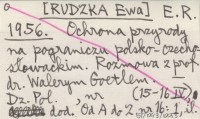 [RUDZKA Ewa] E. R.
1956. Ochrona przyrody
na pograniczu polsko-czecho-
słowackim. Rozmowa z prof.
dr. Walerym Goetlem.
Dz. Pol., nr (15-16 IV)
dod. Od A do Z. nr 16: 1, il.